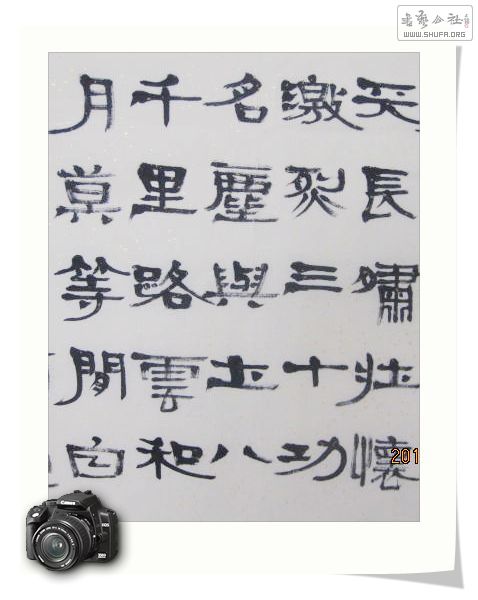 書藝公社
WWW.SHUFA.ORG
天長嘯壯懷
激烈三十功
名塵與土八
千里路雲和
月莫等間白
201
Canon
EOS